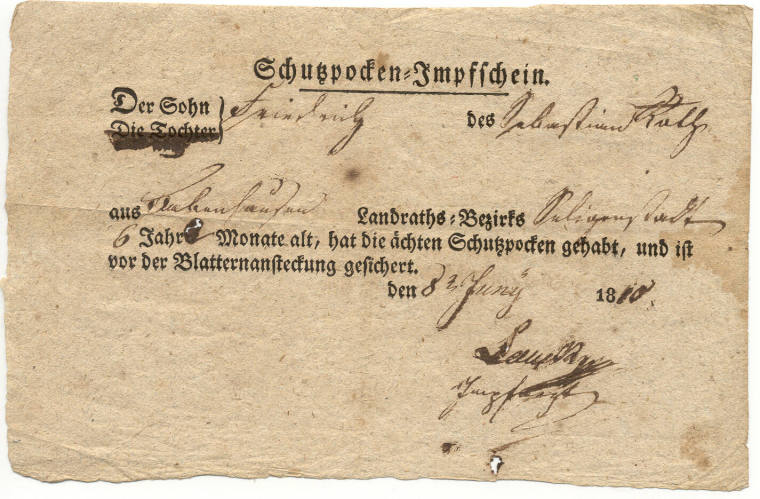 Schutzpocken-Impfschein.
Der Sohn Friedrich des Sebastian Roth
Die Tochter
aus Babenhausen Landraths-Bezirks Seligenstadt
6 Jahr Monate alt, hat die ächten Schutzpocken gehabt, und ist
vor der Blatternansteckung gesichert.
den 8t Juny 1810.
Impfarzt